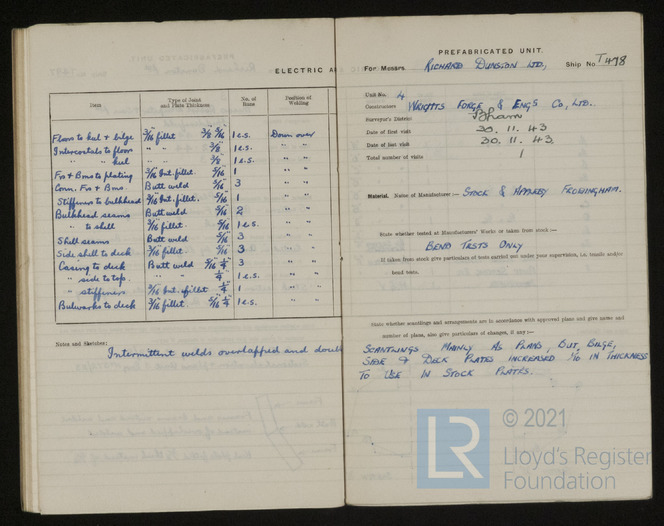 ELECTRIC A
Item
Type of Joint and Plate Thickness
No. of Runs
Position of Welding
Floors to keel & bilge 3/16 fillet 3/8 5/16 1 e.s. Down over
Intercostals to floors " " 3/8 1 e.s. " "
" " keel " " 3/8 1 e.s. " "
Frs & Bms to plating 3/16 Int. fillet 5/16 1 " "
Conn. Frs & Bms. Butt weld 5/16 3 " "
Stiffeners to bulkhead 3/16 Int. fillet. 5/16 1 " "
Bulkhead seams Butt weld 5/16 2 " "
" to shell 3/16 fillet. 5/16 1 e.s. " "
Shell seams Butt weld 5/16 3 " "
Side shell to deck 3/16 fillet. 5/16 3 " "
Casing to deck Butt weld 5/16 1/4 3 " "
" side to top. " " 1/4 1 e.s. " "
" stiffeners 3/16 Int. fillet 1/4 1 " "
Bulwarks to deck 3/16 fillet 5/16 1/4 1 e.s. " "
Notes and Sketches:
Intermittent welds overlapped and doubl
PREFABRICATED UNIT.
For Messrs. RICHARD DUNSTON LTD., Ship No. T478
Unit No. 4
Constructors WRIGHTS FORGE & ENGS CO., LTD.
Surveyor's District B'ham
Date of first visit 30. 11. 43
Date of last visit 30. 11. 43.
Total number of visits 1
Material. Name of Manufacturer :— STOCK & APPLEBY FRODINGHAM.
State whether tested at Manufacturers' Works or taken from stock :—
BEND TESTS ONLY
If taken from stock give particulars of tests carried out under your supervision, i.e. tensile and/or
bend tests.
State whether scantlings and arrangements are in accordance with approved plans and give name and
number of plans, also give particulars of changes, if any :—
SCANTLINGS MAINLY AS PLANS, BUT, BILGE,
SIDE & DECK PLATES INCREASED 1/16 IN THICKNESS
TO USE IN STOCK PLATES.
© 2021
LR
Lloyd's Register
Foundation